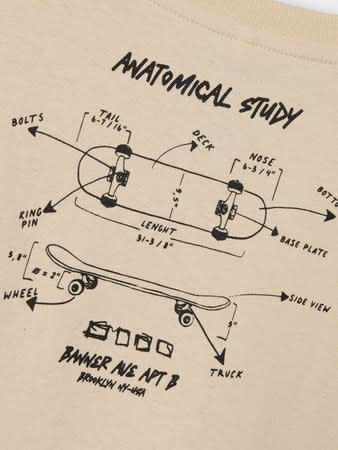 ANATOMICAL STUDY
BOLTS
TAIL
6-7/16"
DECK
NOSE
6-3/4"
BOTTO
KING
PIN
9,5"
BASE PLATE
LENGHT
31-3/8"
5,8"
Ø = 2"
WHEEL
SIDE VIEW
5"
TRUCK
BANNER AVE APT B
BROOKLYN NY-USA